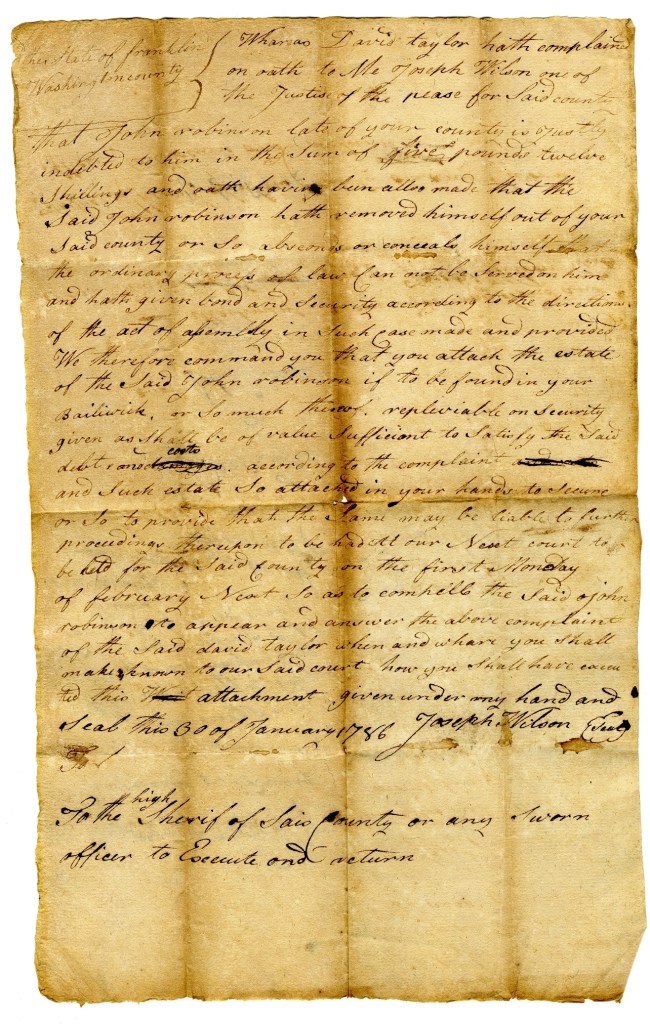 the State of franklin
Washington county
Wharas David taylor hath complained
on oath to Me Joseph Wilson one of
the Justise of the pease for Said county
that John robinson late of your county is Justly
indebted to him in the Sum of five pounds twelve
Shillings and oath having been allso made that the
Said John robinson hath removed himself out of your
Said county or So absconds or conceals himself that
the ordinary process of law Can not be Served on him
and hath given bond and Security according to the directions
of the act of assembly in Such case made and provided
We therefore command you that you attach the estate
of the Said John robinson if to be found in your
Bailiwick, or So much thereof. repleviable on Security
given as Shall be of value Sufficient to Satisfy the Said
debt and costs according to the complaint
and Such estate So attached in your hands to Secure
or So to provide that the Same may be liable to further
proceedings thereupon to be had At our Next court to
be held for the Said County on the first Monday
of february Next So as to compell the Said John
robinson to appear and answer the above complaint
of the Said david taylor when and whare you Shall
make known to our Said court how you Shall have execu
ted this attachment given under my hand and
Seal this 30 of January 1786 Joseph Wilson (Seal)
To
To the high Sherif of Said County or any Sworn
officer to Execute and return